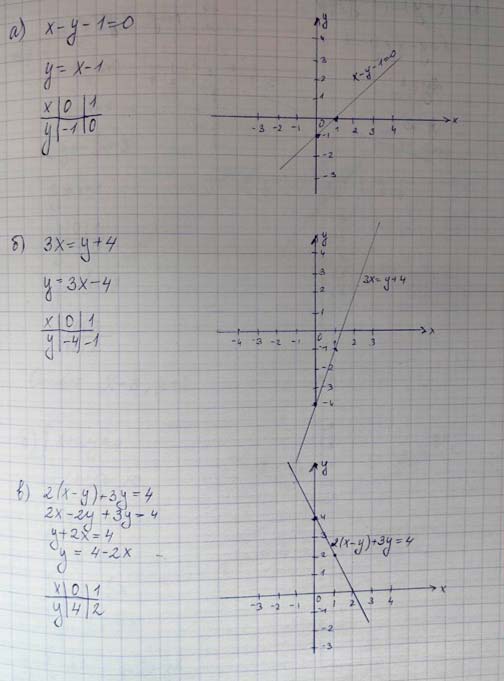 а) x-y-1=0
y = x-1
x | 0 | 1
y | -1 | 0
y
4
3
2
1
0
-3 -2 -1 1 2 3 4 x
-1
-2
-3
x-y-1=0
б) 3x=y+4
y = 3x-4
x | 0 | 1
y | -4 | -1
y
4
3
2
1
0
-4 -3 -2 -1 1 2 3 x
-1
-2
-3
-4
3x=y+4
в) 2(x-y)+3y=4
2x-2y+3y=4
y+2x=4
y = 4-2x
x | 0 | 1
y | 4 | 2
y
4
3
2
1
0
-3 -2 -1 1 2 3 4 x
-1
-2
-3
2(x-y)+3y=4